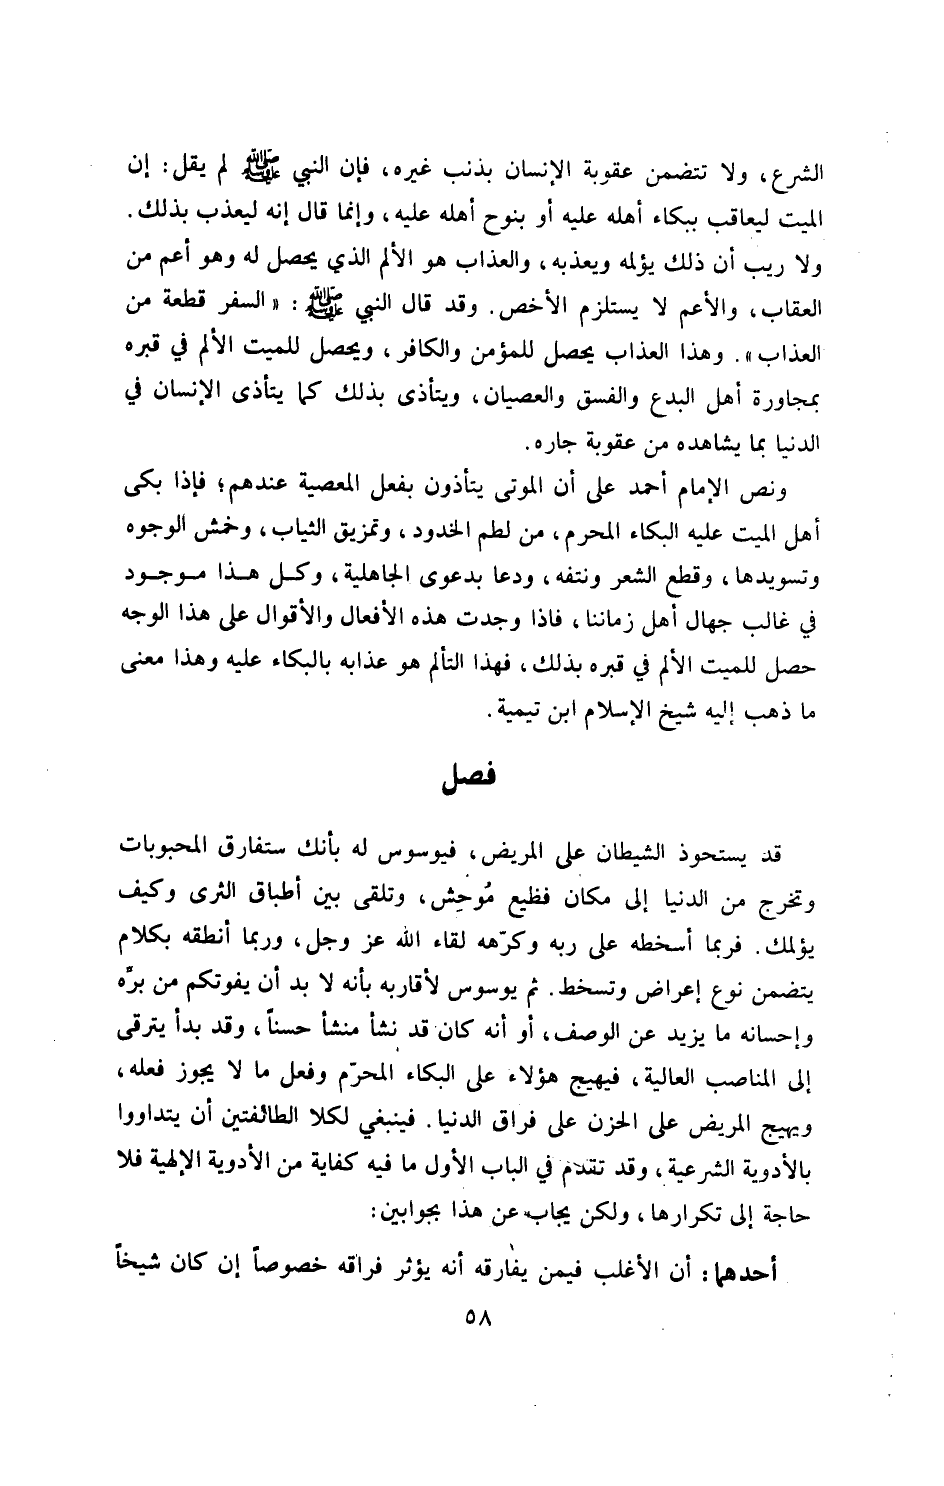 الشرع، ولا تتضمن عقوبة الإنسان بذنب غيره، فإن النبي ﷺ لم يقل: إن
الميت ليعاقب ببكاء أهله عليه أو بنوح أهله عليه، وإنما قال إنه ليعذب بذلك.
ولا ريب أن ذلك يؤلمه ويعذبه، والعذاب هو الألم الذي يحصل له وهو أعم من
العقاب، والأعم لا يستلزم الأخص. وقد قال النبي ﷺ: «السفر قطعة من
العذاب». وهذا العذاب يحصل للمؤمن والكافر، ويحصل للميت الألم في قبره
بمجاورة أهل البدع والفسق والعصيان، ويتأذى بذلك كما يتأذى الإنسان في
الدنيا بما يشاهده من عقوبة جاره.
ونص الإمام أحمد على أن الموتى يتأذون بفعل المعصية عندهم؛ فإذا بكى
أهل الميت عليه البكاء المحرم، من لطم الخدود، وتمزيق الثياب، وخمش الوجوه
وتسويدها، وقطع الشعر ونتفه، ودعا بدعوى الجاهلية، وكل هذا موجود
في غالب جهال أهل زماننا، فاذا وجدت هذه الأفعال والأقوال على هذا الوجه
حصل للميت الألم في قبره بذلك، فهذا التألم هو عذابه بالبكاء عليه وهذا معنى
ما ذهب إليه شيخ الإسلام ابن تيمية.
فصل
قد يستحوذ الشيطان على المريض، فيوسوس له بأنك ستفارق المحبوبات
وتخرج من الدنيا إلى مكان فظيع مُوحِش، وتلقى بين أطباق الثرى وكيف
يؤلمك. فربما أسخطه على ربه وكرّهه لقاء الله عز وجل، وربما أنطقه بكلام
يتضمن نوع إعراض وتسخط. ثم يوسوس لأقاربه بأنه لا بد أن يفوتكم من برِّه
وإحسانه ما يزيد عن الوصف، أو أنه كان قد نشأ منشأ حسناً، وقد بدأ يترقى
إلى المناصب العالية، فيهيج هؤلاء على البكاء المحرّم وفعل ما لا يجوز فعله،
ويهيج المريض على الحزن على فراق الدنيا. فينبغي لكلا الطائفتين أن يتداووا
بالأدوية الشرعية، وقد تقدم في الباب الأول ما فيه كفاية من الأدوية الإلهية فلا
حاجة إلى تكرارها، ولكن يجاب عن هذا بجوابين:
أحدهما: أن الأغلب فيمن يفارقه أنه يؤثر فراقه خصوصاً إن كان شيخاً
٥٨